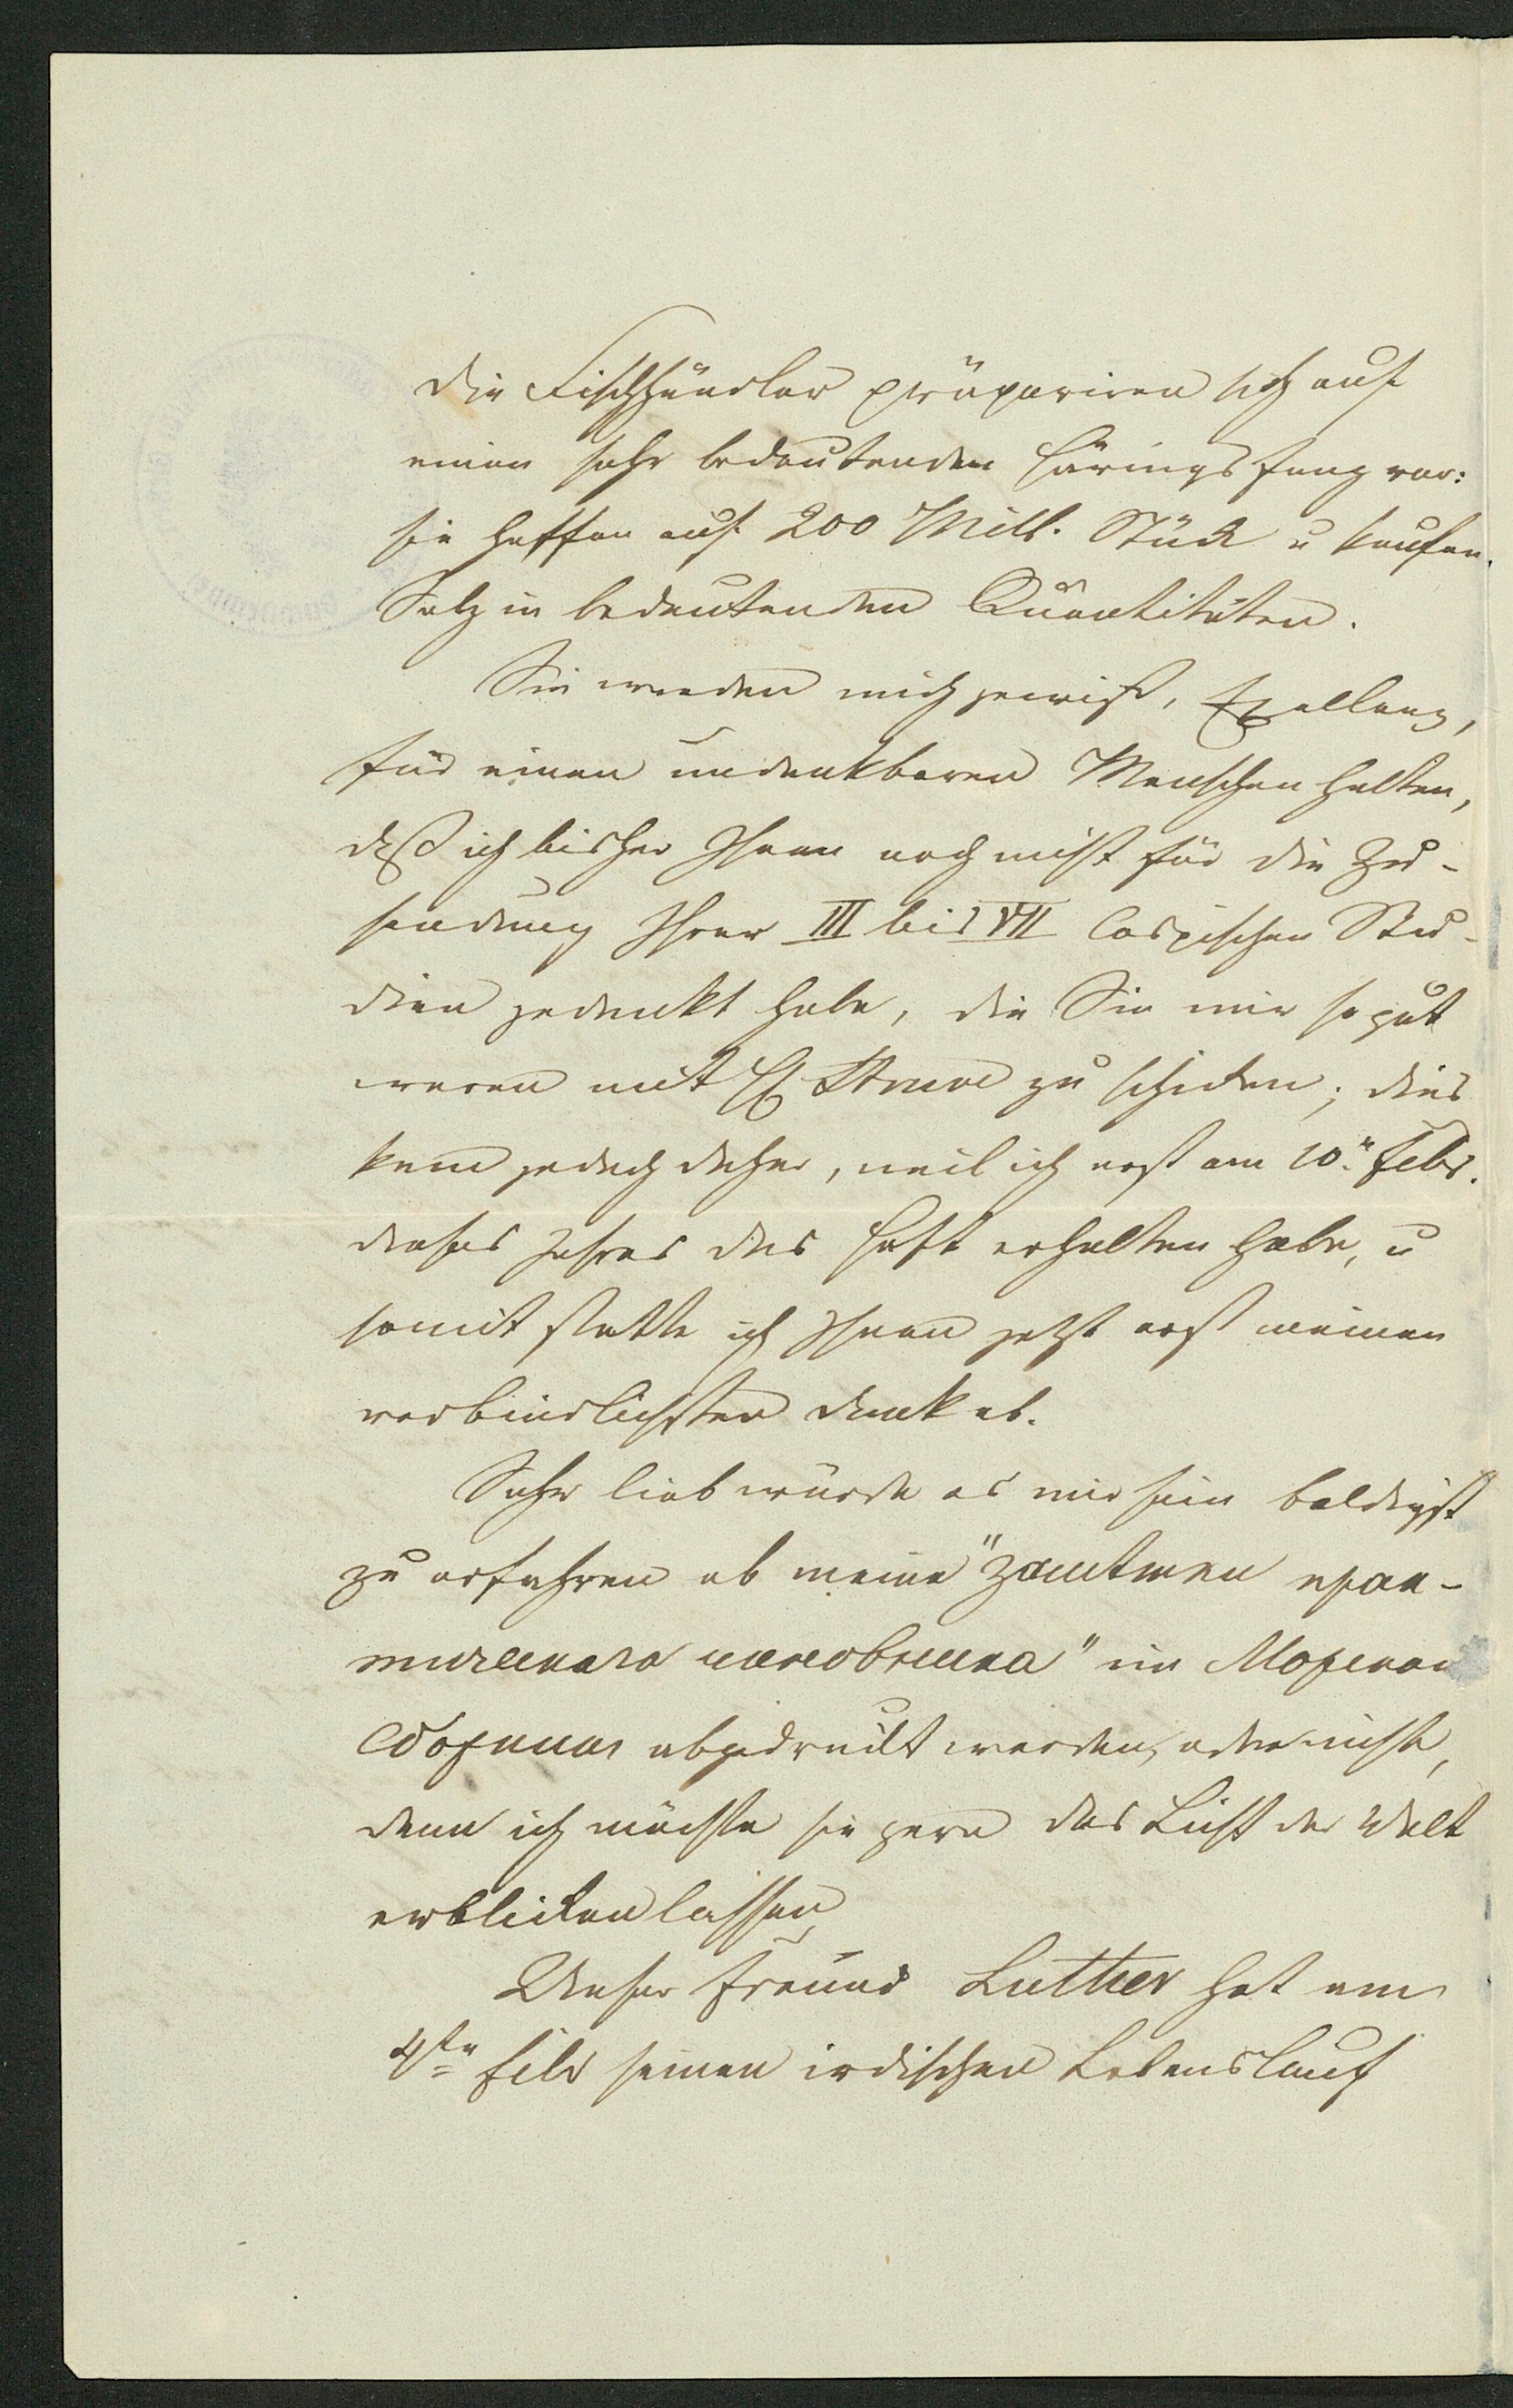 Die Fischhändler präpariren sich auf
einen sehr bedeutenden Häringsfang vor:
sie hoffen auf 200 Mill. Stück u kaufen
Salz in bedeutenden Quantitäten.
Sie werden mich gewiß, Exzellenz,
für einen undankbaren Menschen halten,
daß ich bisher Ihnen noch nicht für die Zu-
sendung Ihrer III bis VII Caspischen Stu-
dien gedankt habe, die Sie mir so gut
waren mit H Struve zu schicken; dies
kam jedoch daher, weil ich erst am 10n Febr.
dieses Jahres das Heft erhalten habe, u
somit statte ich Ihnen jetzt erst meinen
verbindlichsten Dank ab.
Sehr lieb würde es mir sein baldigst
zu erfahren ob meine "Замѣтки прак-
тическаго человѣка" im Морской
Сборникъ abgedruckt werden, oder nicht,
denn ich möchte sie gern das Licht der Welt
erblicken lassen
Unser Freund Luther hat am
4ten Febr seinen irdischen Lebenslauf